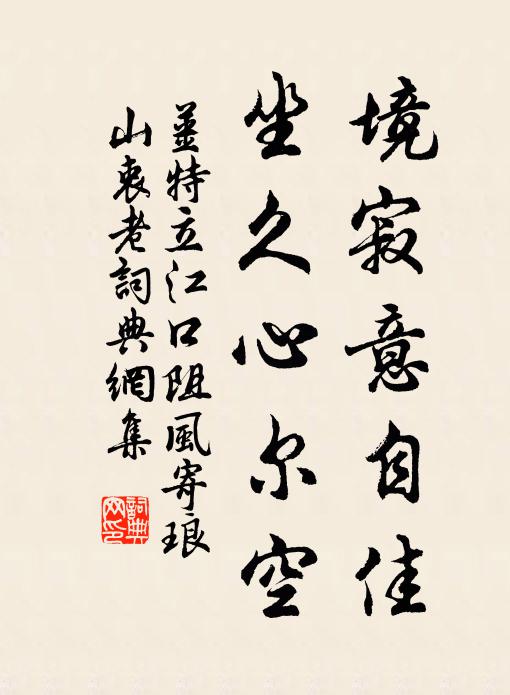 境寂意自佳
坐久心尔空
姜特立江口阻風寄琅
山衷老詞典網集
詞典網印